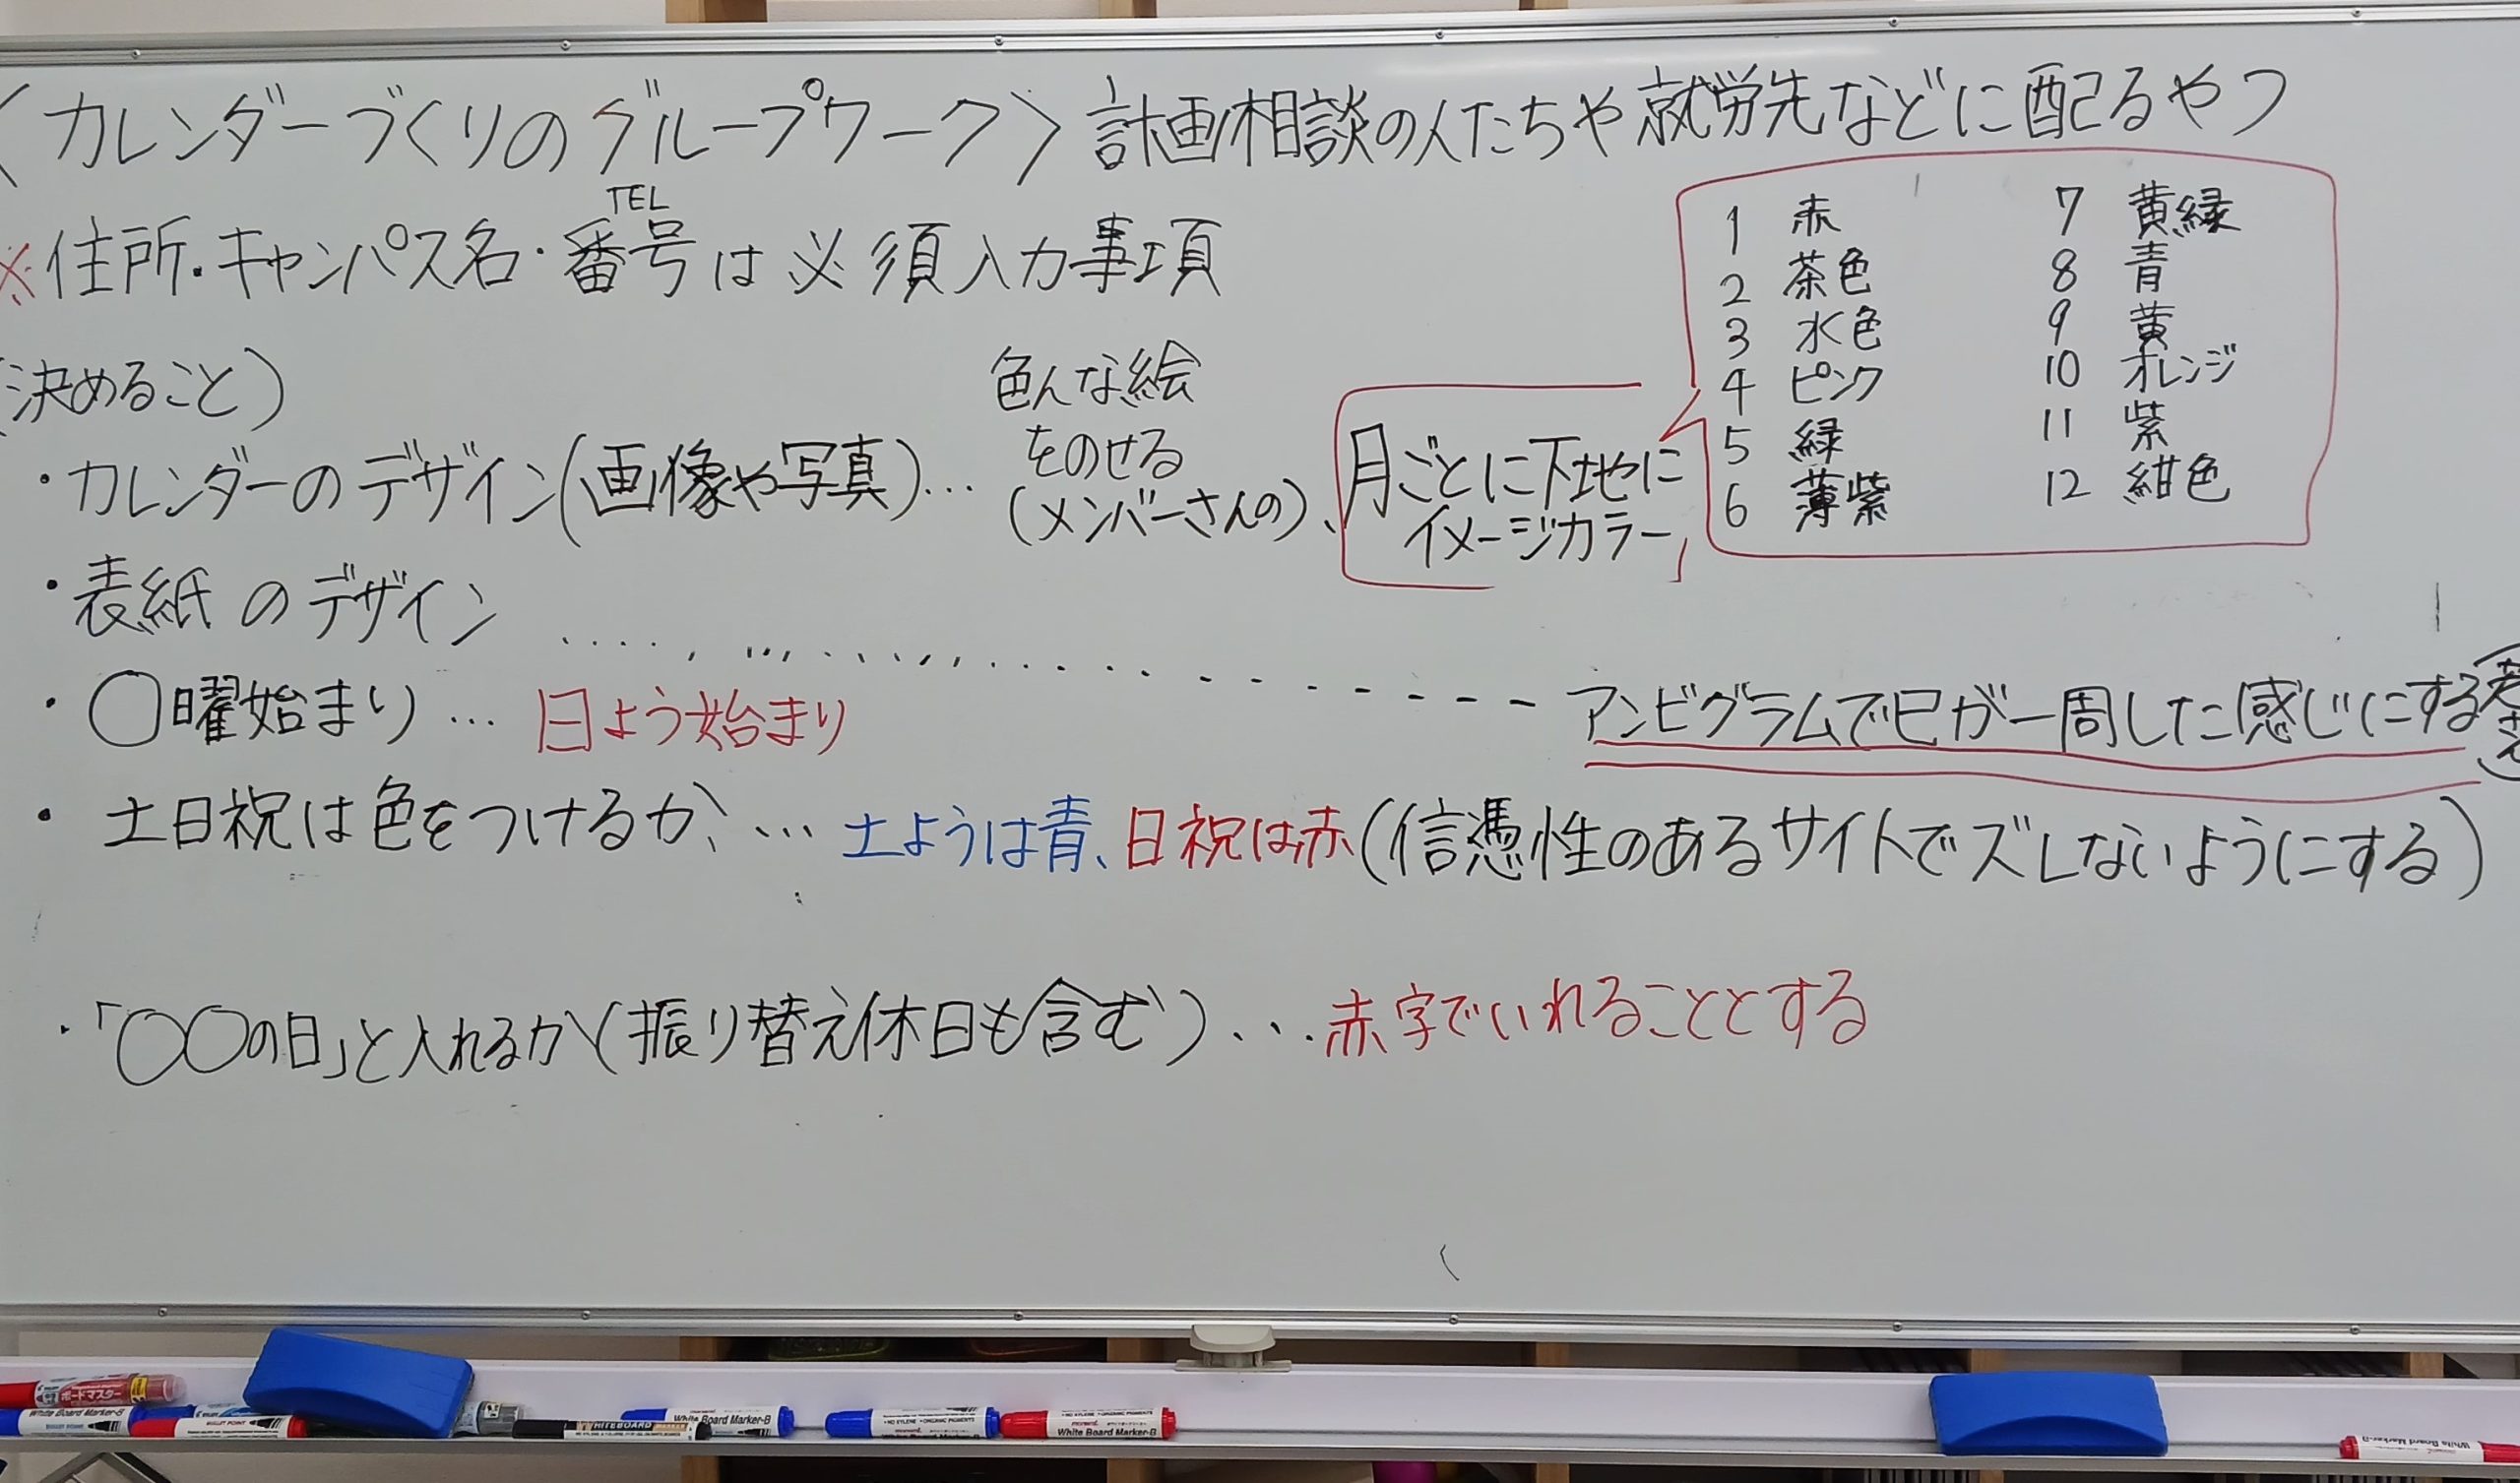 〈カレンダーづくりのグループワーク〉計画相談の人たちや就労先などに配るやつ
TEL
※住所・キャンパス名・番号は必須入力事項
1 赤
2 茶色
3 水色
4 ピンク
5 緑
6 薄紫
7 黄緑
8 青
9 黄
10 オレンジ
11 紫
12 紺色
(決めること)
・カレンダーのデザイン(画像や写真)…
色んな絵
をのせる
(メンバーさんの)、
月ごとに下地に
イメージカラー
・表紙のデザイン
アンビグラムで巳が一周した感じにする
・〇曜始まり… 日よう始まり
・土日祝は色をつけるか、… 土ようは青、日祝は赤(信憑性のあるサイトでズレないようにする)
・「〇〇の日」と入れるか(振り替え休日も含む)…赤字でいれることとする
ボードマスター
White Board Marker-B
White Board Marker-B
WHITEBOARD
White Board Marker-B